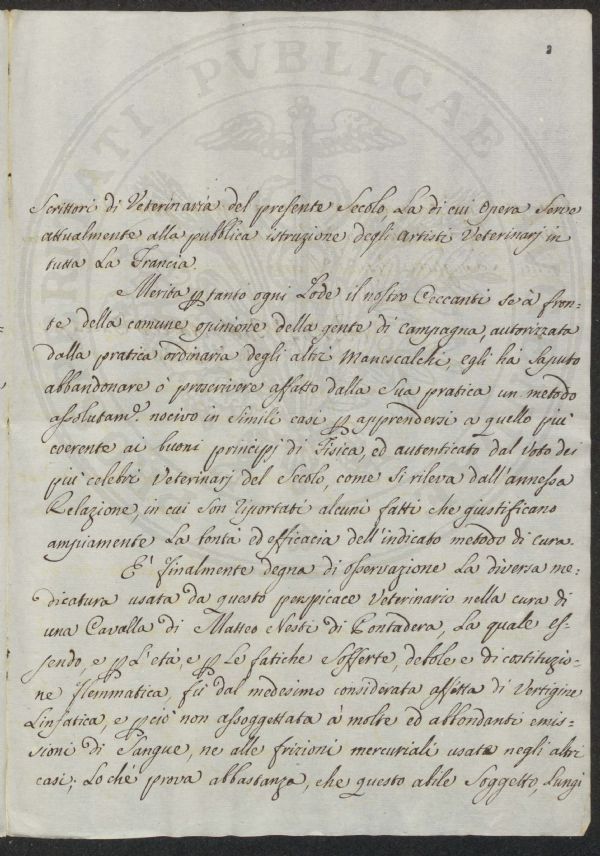 3
Scrittori di Veterinaria del presente Secolo, La di cui Opera Serve
attualmente alla pubblica istruzione degli Artisti Veterinarj in
tutta La Francia.
Merita p tanto ogni Lode il nostro Ceccanti se à fron=
te della comune opinione della gente di Campagna, autorizzata
dalla pratica ordinaria degli altri Manescalchi, egli hà Saputo
abbandonare o proscrivere affatto dalla Sua pratica un metodo
assolutam.e nocivo in Simili casi p apprendersi a quello più
coerente ai buoni principj di Fisica, ed autenticato dal Voto dei
più celebri Veterinarj del Secolo, come Si rileva dall'annessa
Relazione, in cui Son riportati alcuni fatti che giustificano
ampiamente La bontà ed efficacia dell'indicato metodo di cura.
E' finalmente degna di osservazione La diversa me=
dicatura usata da questo perspicace Veterinario nella cura di
una Cavalla di Matteo Nesti di Pontadera, La quale es=
sendo, e p L'età, e p Le fatiche Sofferte, debole e di costituzio=
ne flemmatica, fù dal medesimo considerata affetta di Vertigine
Linfatica, e p ciò non assoggettata à molte ed abbondanti emis=
sioni di Sangue, ne alle frizioni mercuriali usate negli altri
casi; Lo chè prova abbastanza, che questo abile Soggetto, Lungi
RATI PVBLICAE